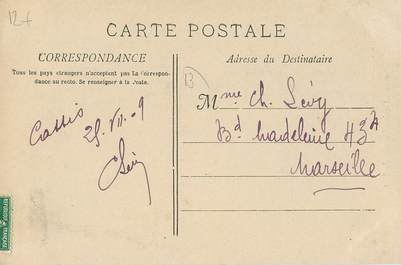 12+
CARTE POSTALE
CORRESPONDANCE
Tous les pays étrangers n'acceptent pas la Correspon-
dance au recto. Se renseigner à la Poste.
Cassis
25. VII. 9
CLévy
Adresse du Destinataire
13
Mme Ch. Lévy
Bd Madeleine 43A
Marseille
REPUBLIQUE FRANÇAISE